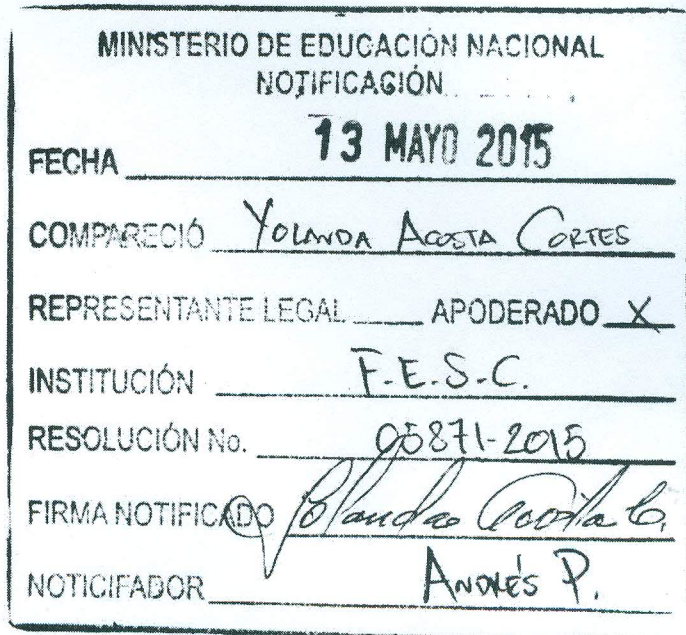 MINISTERIO DE EDUCACIÓN NACIONAL
NOTIFICACIÓN
FECHA 13 MAYO 2015
COMPARECIÓ YOLANDA ACOSTA CORTES
REPRESENTANTE LEGAL APODERADO X
INSTITUCIÓN F.E.S.C.
RESOLUCIÓN No. 05871-2015
FIRMA NOTIFICADO Yolanda Acosta C.
NOTICIFADOR ANDRÉS P.